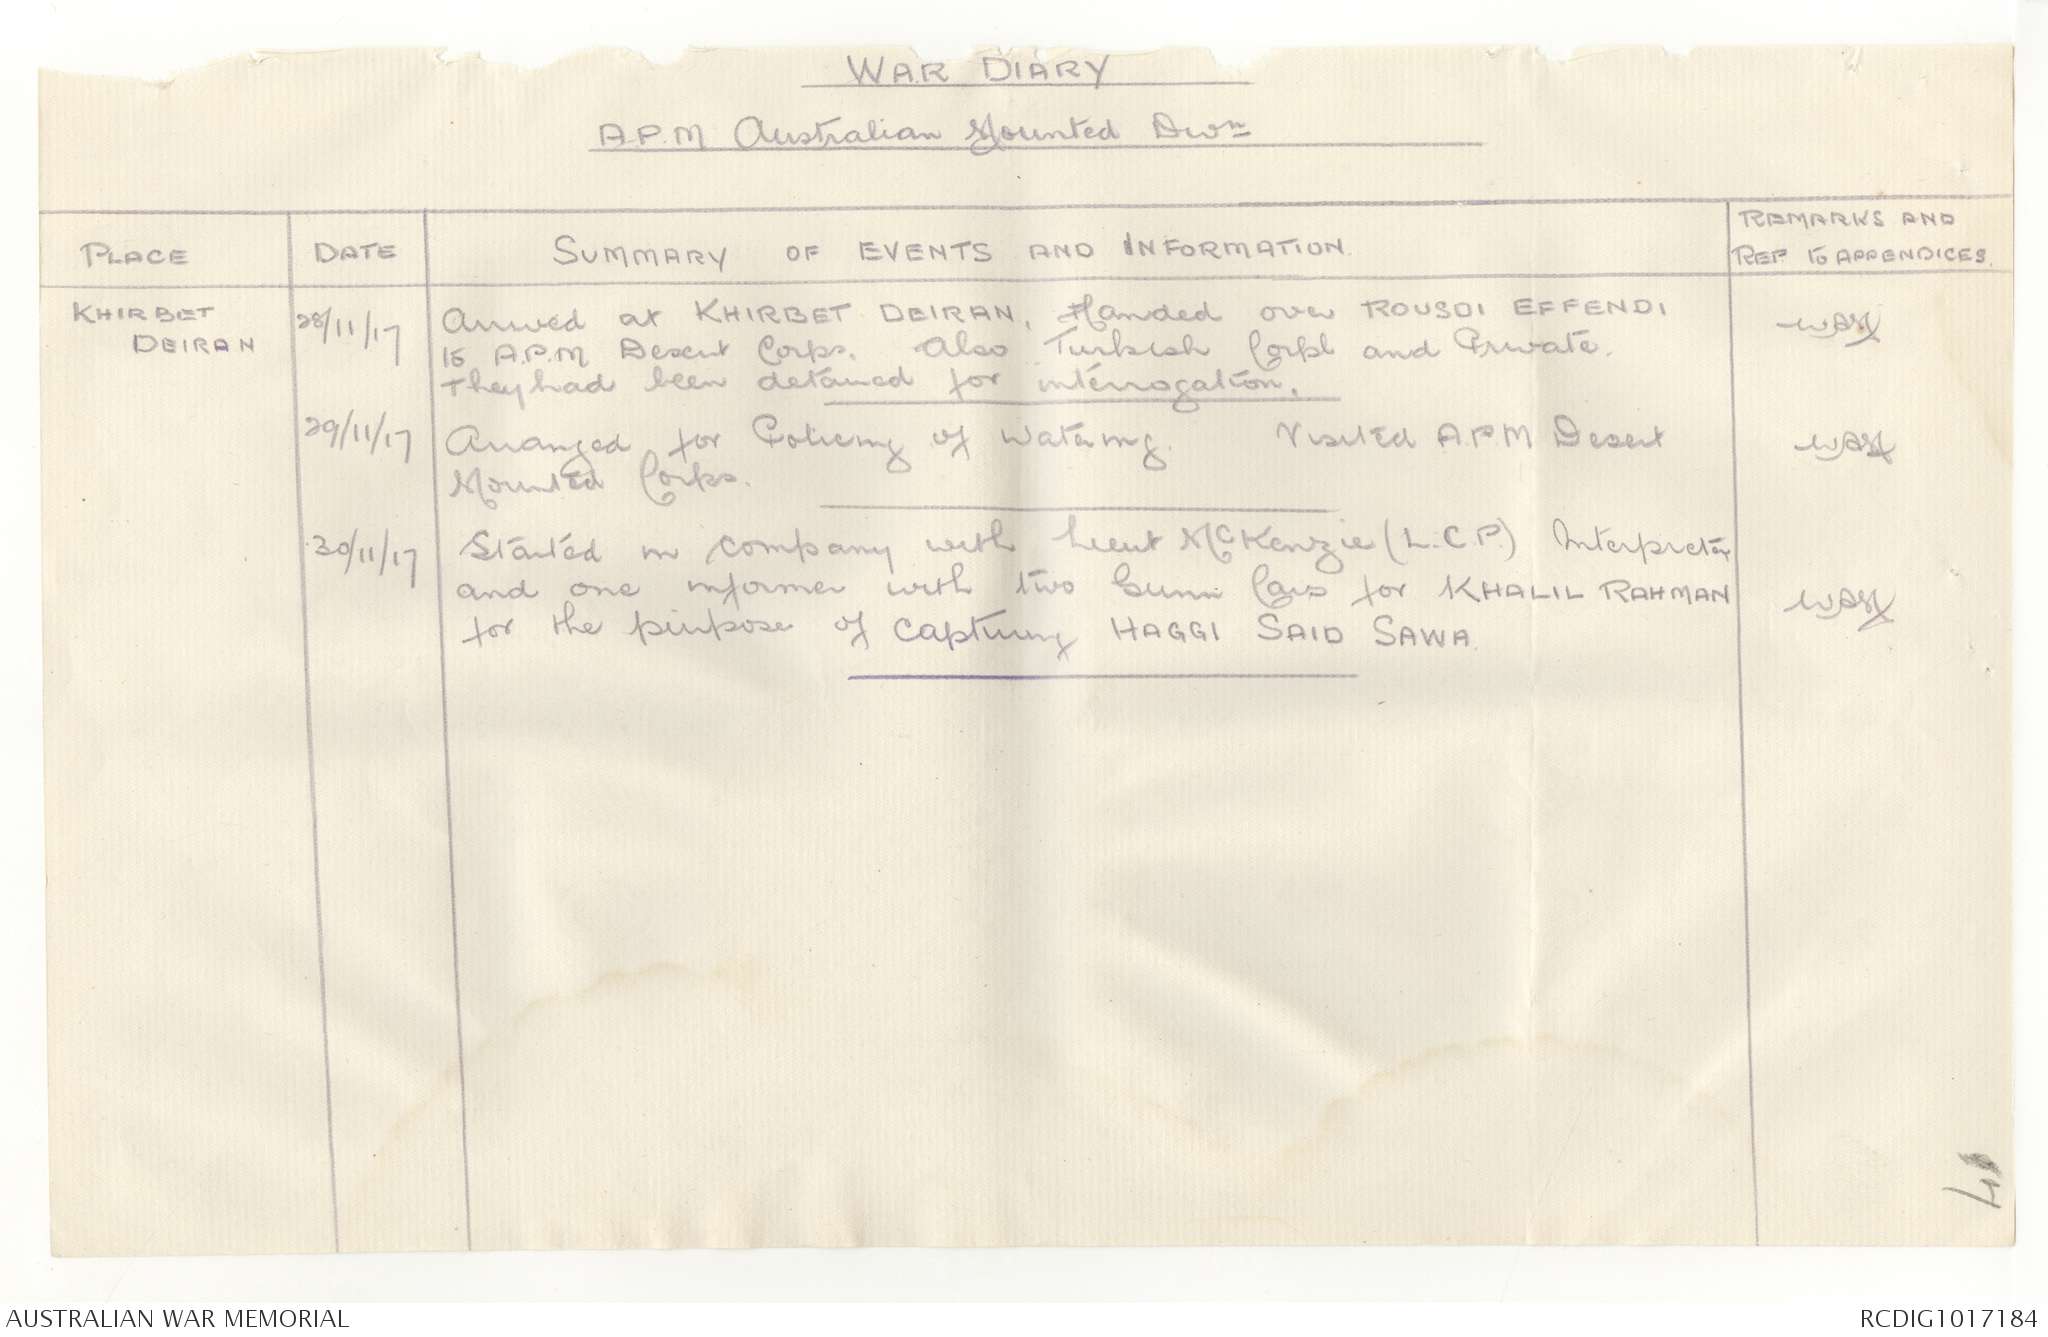 WAR DIARY
A.P.M Australian Mounted Divn
PLACE
DATE
SUMMARY OF EVENTS AND INFORMATION.
REMARKS AND
REF TO APPENDICES.
KHIRBET
DEIRAN
28/11/17
Arrived at KHIRBET DEIRAN. Handed over ROUSDI EFFENDI
to A.P.M Desert Corps. Also Turkish Corpl and Private.
They had been detained for interrogation.
29/11/17
Arranged for Policing of Watering. Visited A.P.M Desert
Mounted Corps.
30/11/17
Started in company with Lieut McKenzie (L.C.P.) Interpreter
and one informer with two Gunn Cars for KHALIL RAHMAN
for the purpose of capturing HAGGI SAID SAWA.
AUSTRALIAN WAR MEMORIAL
RCDIG1017184